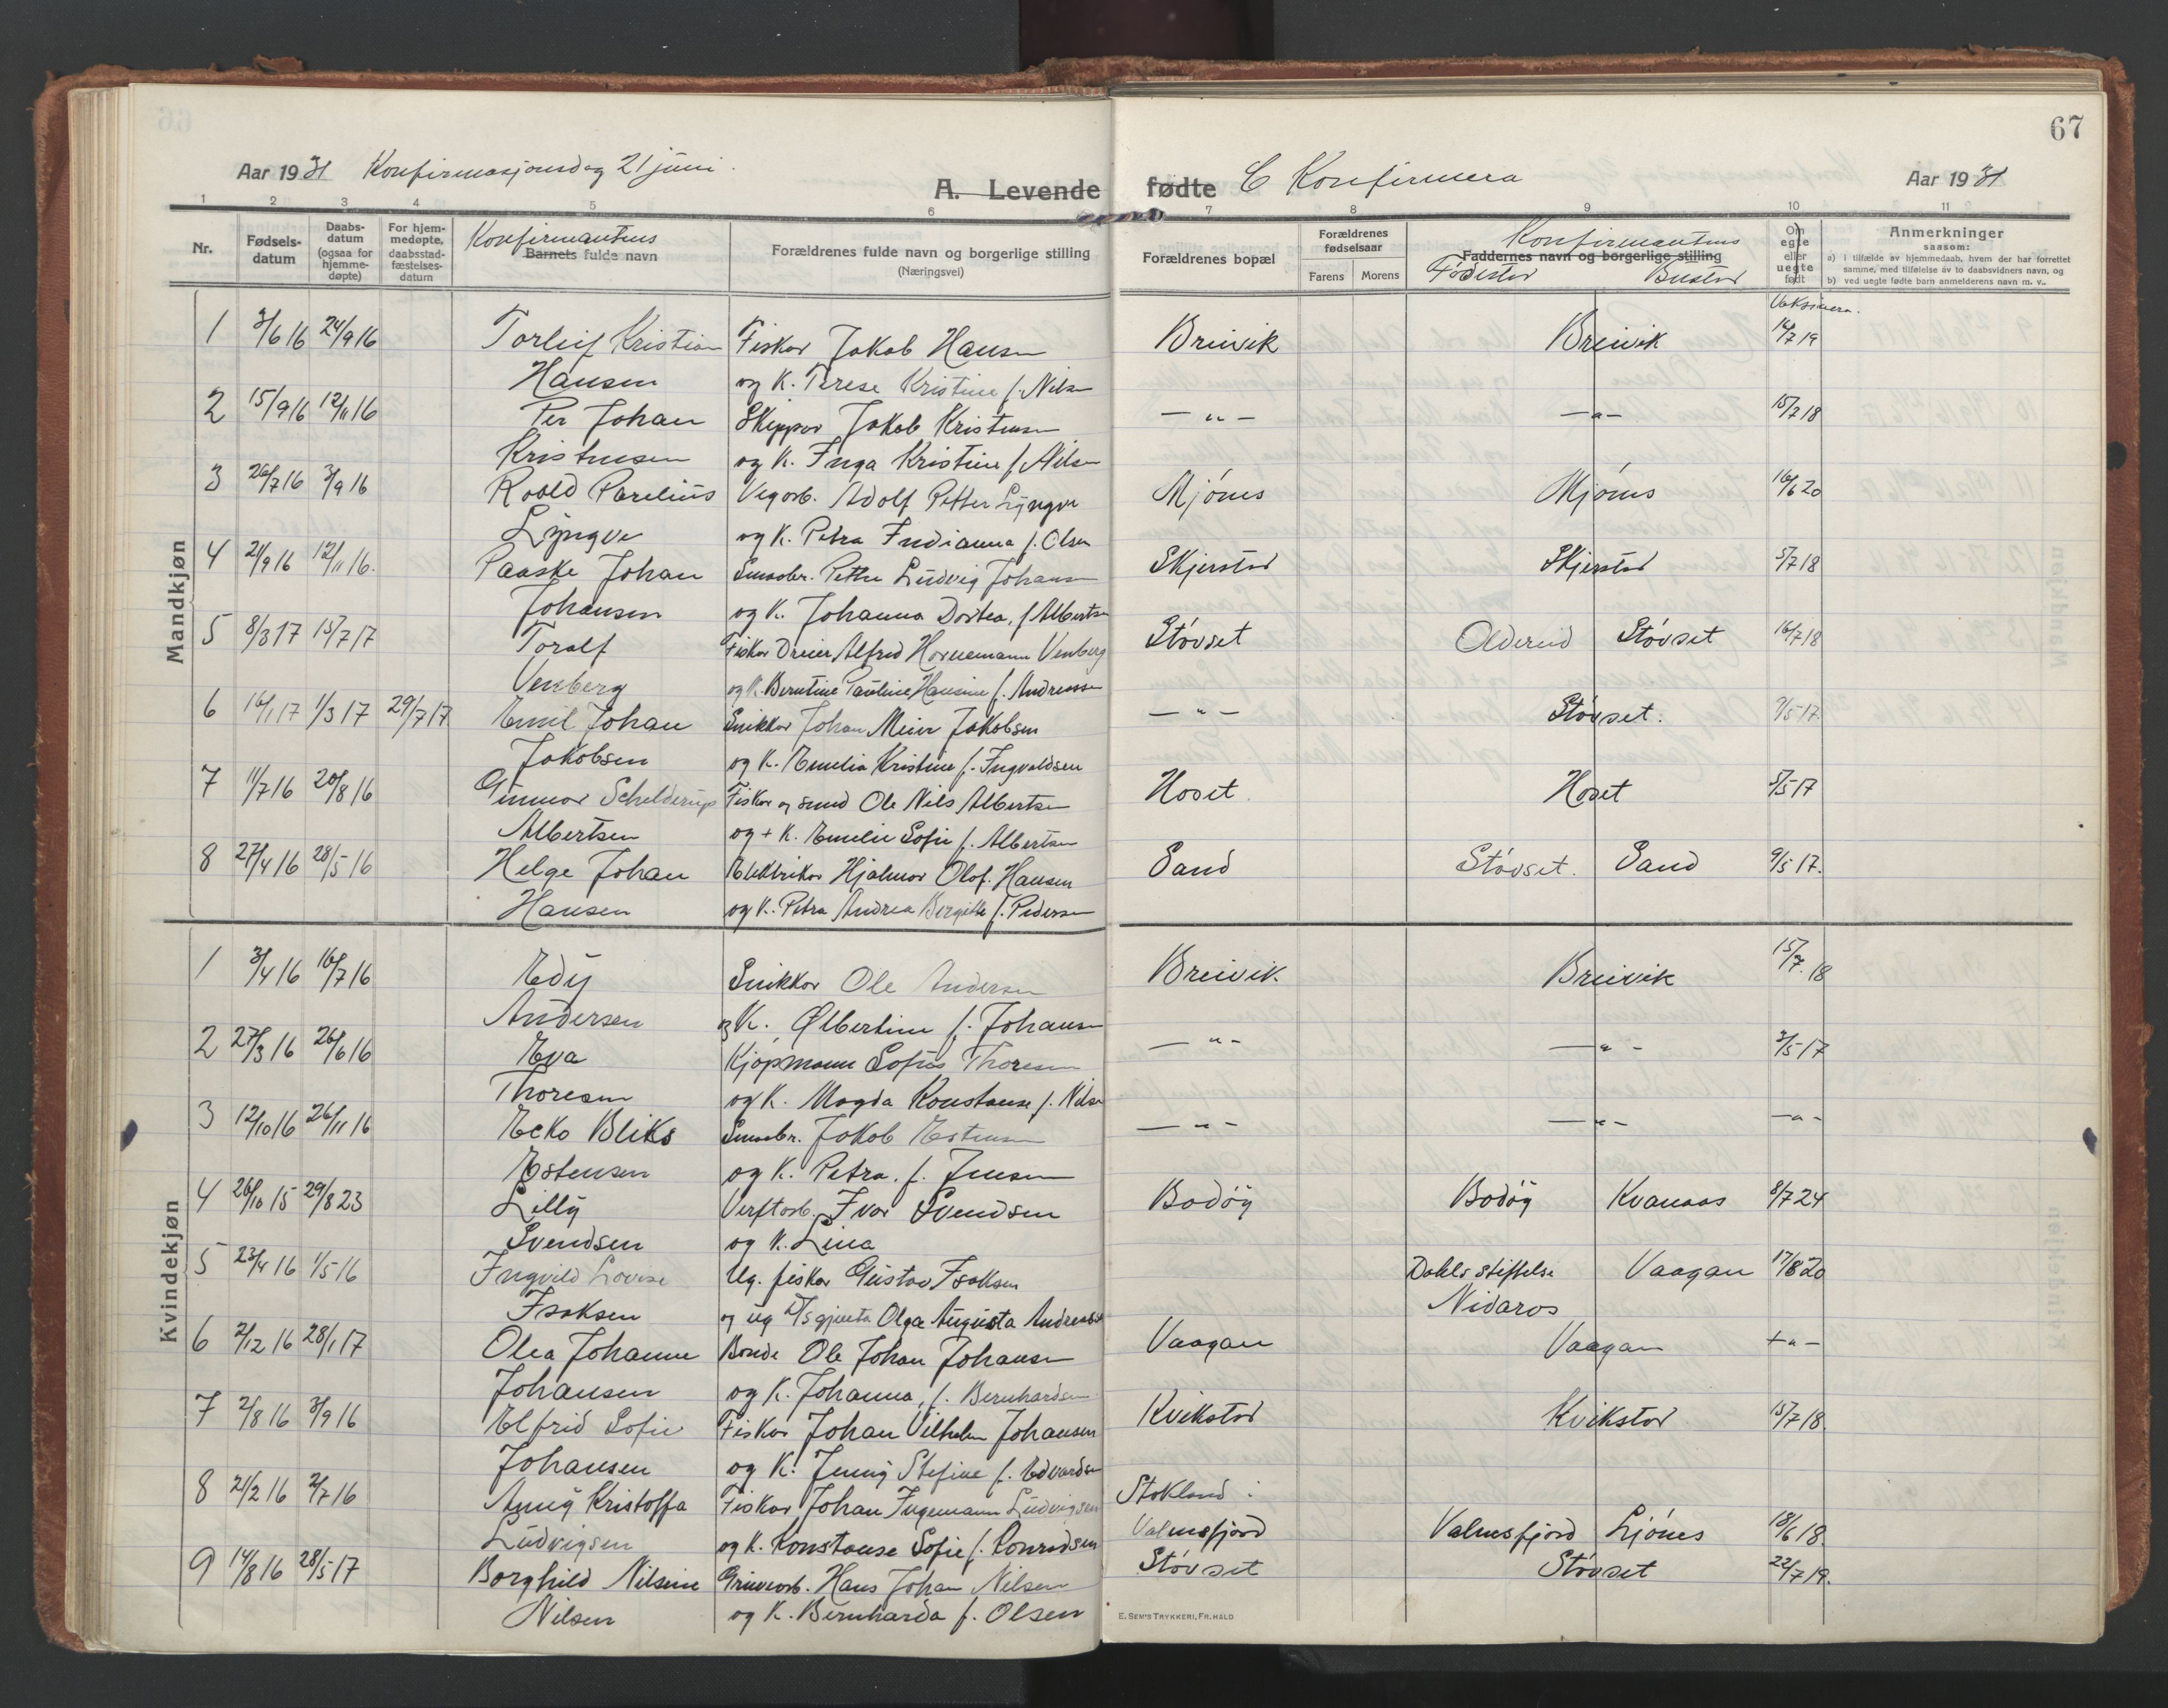 67
Aar 1931 Konfirmasjonsdag 21 juni.
A. Levende fødte C Konfirmera
Aar 1931
1 2 3 4 5 6 7 8 9 10 11
Nr.
Fødsels-
datum
Daabs-
datum
(ogsaa for
hjemme-
døpte)
For hjem-
medøpte,
daabsstad-
fæstelses-
datum
Konfirmantens
Barnets fulde navn
Forældrenes fulde navn og borgerlige stilling
(Næringsvei)
Forældrenes bopæl
Forældrenes
fødselsaar
Farens Morens
Konfirmantens
Faddernes navn og borgerlige stilling
Fødestad Bustad
Om
egte
eller
uegte
født
Anmerkninger
saasom:
a) i tilfælde av hjemmedaab, hvem der har forrettet
samme, med tilføielse av to daabsvidners navn, og
b) ved uegte fødte barn anmelderens navn m. v..
Vaksinera.
Mandkjøn
1 3/6 16 24/9 16 Torleif Kristian Fiskar Jakob Hansen Breivik Breivik 14/7 19
Hansen og K. Terese Kristine f. Nilsen
2 15/9 16 12/11 16 Per Johan Skipper Jakob Kristensen — " — — " — 15/7 18
Kristensen og K. Inga Kristine f. Nilsen
3 26/7 16 3/9 16 Roald Parelius Vegarb. Adolf Petter Lyngve Mjónes Mjónes 16/6 20
Lyngve og K. Petra Indianna f. Olsen
4 21/9 16 12/11 16. Paaske Johan Smaabr. Petter Ludvig Johansen Skjerstad Skjerstad 5/7 18
Johansen og K. Johanna Dortea, f. Albertsen
5 8/3 17 15/7 17 Toralf Fiskar Dreier Alfred Hornemann Venberg Stóvset Oldereid Stóvset 16/7 18
Venberg og K. Berntine Pauline Hansine f. Andreassen
6 16/1 17 1/3 17 29/7 17 Emil Johan Snikkar Johan Meier Jakobsen — " — Stóvset. 9/5 17.
Jakobsen og K. Emelia Kristine f. Ingvaldsen
7 11/7 16 20/8 16 Gunnar Schelderup Fiskar og smed Ole Nils Albertsen Hoset Hoset 5/5 17
Albertsen og + K. Emelie Sofie f. Albertsen
8 27/4 16 28/5 16 Helge Johan Elektrikar Hjalmar Olaf. Hansen Sand Stóvset. Sand 9/5 17.
Hansen og K. Petra Andrea Bergitte f. Pedersen
Kvindekjøn
1 3/4 16 16/7 16 Edy Snikkar Ole Andersen Breivik. Breivik 15/7. 18
Andersen og K. Olbertine f. Johansen
2 27/3 16 26/6 16 Eva Kjøpmann Sofus Thoresen — " — — " — 3/5 17
Thoresen og K. Magda Konstanse f. Nilsen
3 12/10 16 26/11 16 Ecko Bliks Smaabr. Jakob Estensen — " — — " — — " —
Estensen og K. Petra. f. Jensen
4 26/10 15 29/8 23 Lilly Verftarb. Ivar Svendsen Bodøy Bodøy Kvanaas 8/7 24
Svendsen og K. Lina
5 23/4 16 1/5 16 Ingvild Lovise Ug. fiskar Gustav Isaksen Dahls stiftelse Vaagan 17/8 20
Isaksen og ug gjenta Olga Augusta Andreassen Nidaros
6 2/12 16 28/1 17 Olea Johanne Bonde Ole Johan Johansen Vaagan Vaagan — " —
Johansen og K. Johanna, f. Bernhardsen
7 2/8 16 3/9 16 Elfrid Sofie Fiskar Johan Vilhelm Johansen Kvikstad Kvikstad 15/7 18.
Johansen og K. Jenny Stefine f. Edvardsen
8 21/2 16 2/7 16 Anny Kristoffa Fiskar Johan Ingemann Ludvigsen Stokland i
Ludvigsen og K. Konstanse Sofie f. Conradsen Valnesfjord Valnesfjord Ljónes 18/6 18.
9 14/8 16 28/5 17 Borghild Nilsine Gruvearb. Hans Johan Nilsen Stóvset Stóvset 22/7 19.
Nilsen og K. Bernharda f. Olsen
E. SEM'S TRYKKERI, FR.HALD